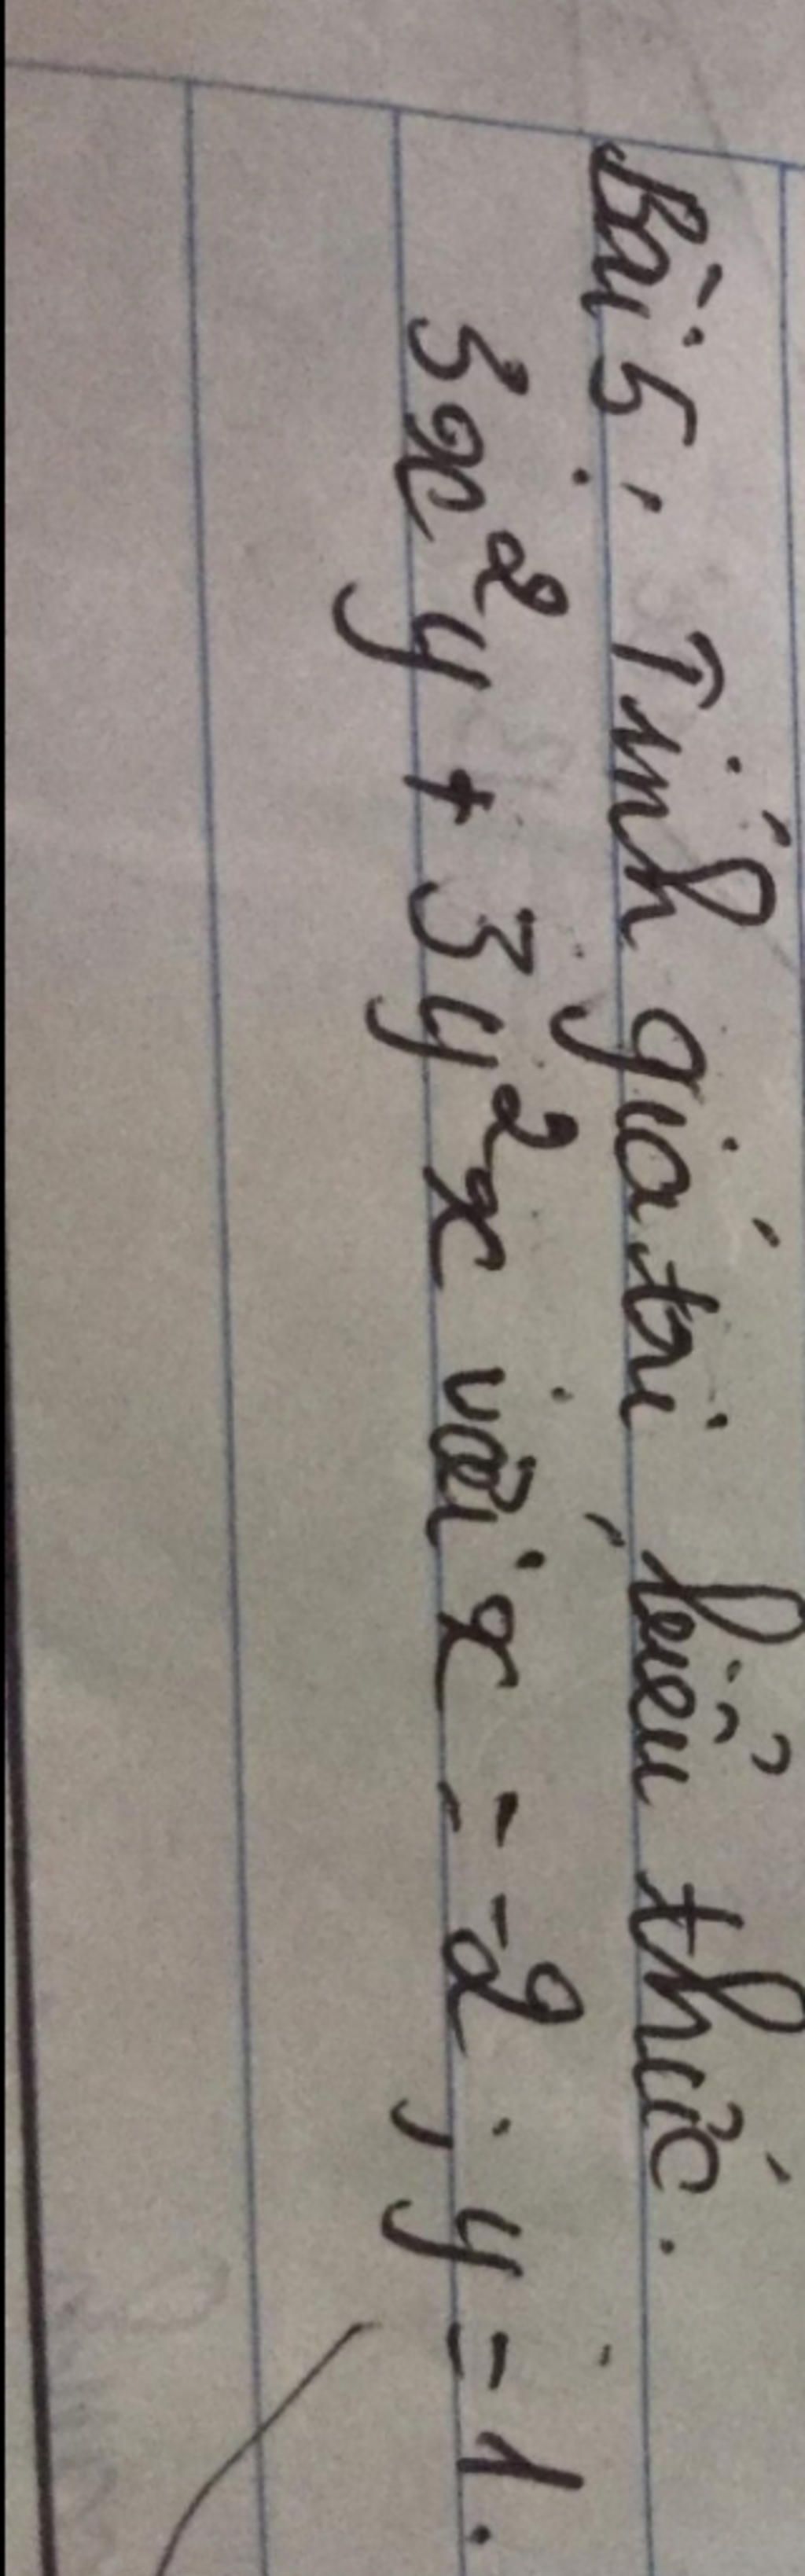 Bài 5, Tính giá trị biểu thức.
3x²y + 3y²x với x = -2 ; y = 1.